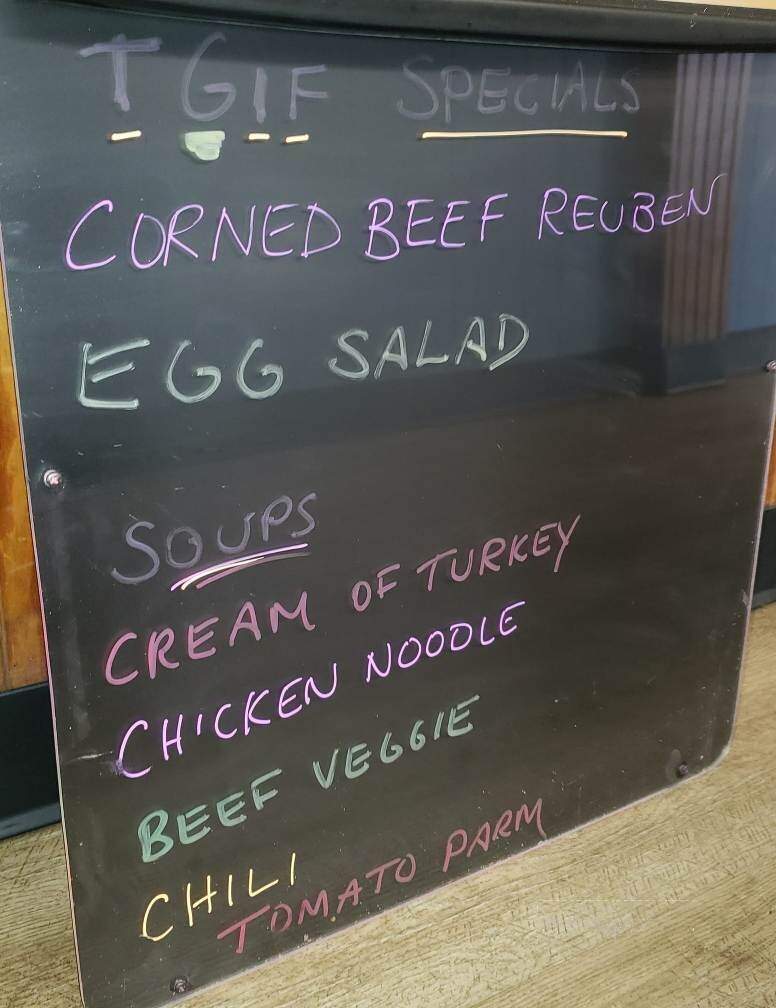 TGIF SPECIALS
CORNED BEEF REUBEN
EGG SALAD
SOUPS
CREAM OF TURKEY
CHICKEN NOODLE
BEEF VEGGIE
CHILI
TOMATO PARM